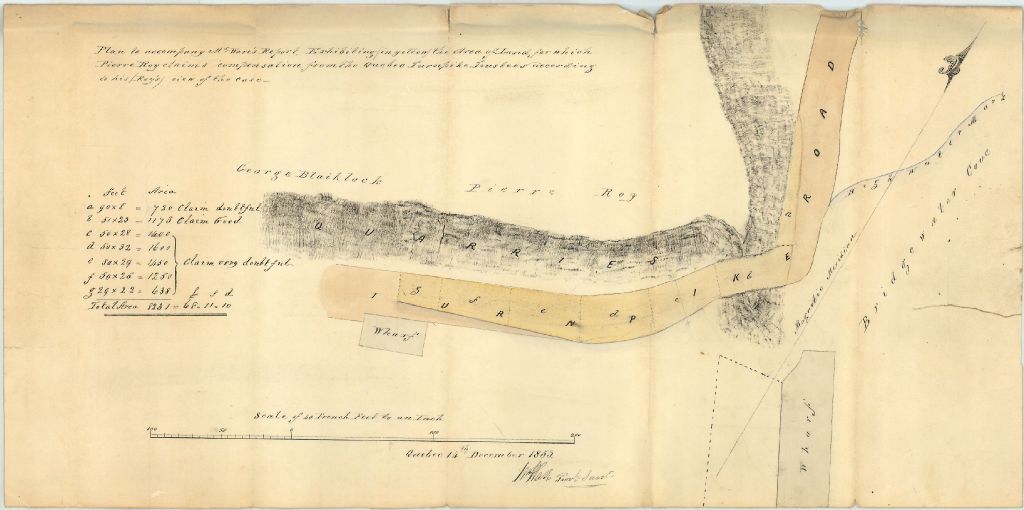 Plan to accompany Mr Ware's Report Exhibiting in yellow the Area of Land, for which
Pierre Roy claims compensation from the Quebec Turnpike Trustees according
to his (Roy's) view of the case
George Blaiklock
Pierre Roy
Feet Area
a 90x8 = 720 Claim doubtful
b 51x23 = 1173 Claim Good
c 50x28 = 1400
d 50x32 = 1600
e 50x29 = 1450 Claim very doubtful
f 50x25 = 1250
g 29x22 = 638
£ s d
Total Area 8231 = 68-11-10
QUARRIES
TURNPIKE ROAD
g f e d c b a
Wharf
High Water Mark
Magnetic Meridian
Bridgewater Cove
Wharf
Scale of 40 French Feet to an Inch
100 50 0 100 200
Quebec 14th December 1853